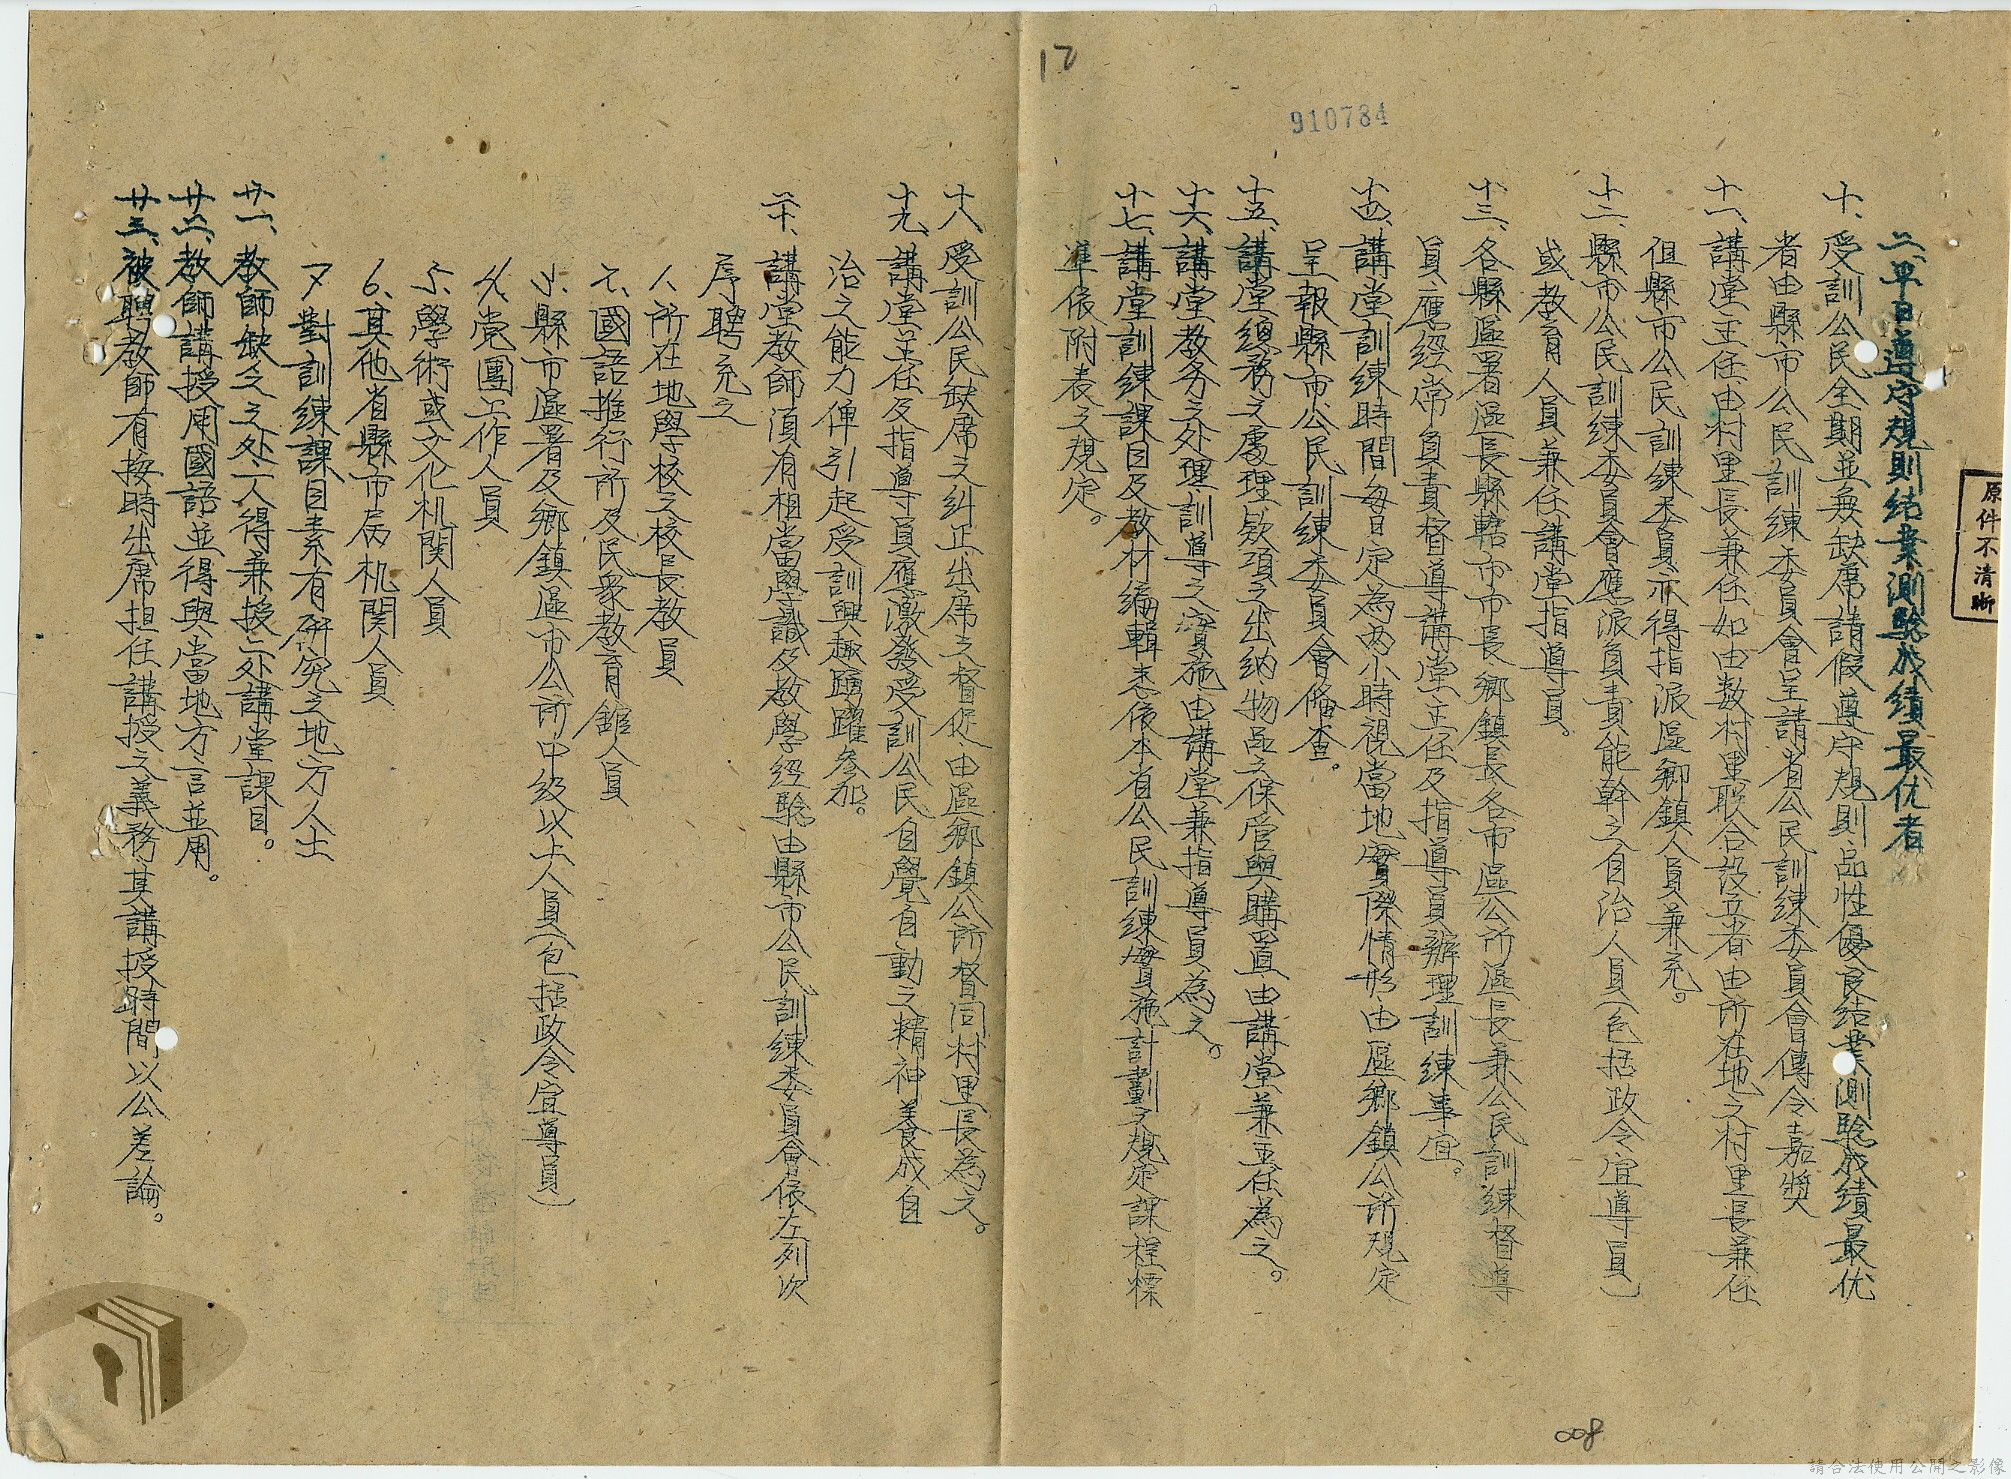 17
910784
原件不清晰
二、平日遵守規則結業測驗成績最优者
十、受訓公民全期並無缺席請假遵守規則品性優良結業測驗成績最优
者由縣市公民訓練委員會呈請省公民訓練委員會傳令嘉獎
十一、講堂主任由村里長兼任如由数村里联合設立者由所在地之村里長兼任
但縣市公民訓練委員亦得指派區鄉鎮人員兼充。
十二、縣市公民訓練委員會應派負責能幹之自治人員(包括政令宣導員)
或教育人員兼任講堂指導員。
十三、各縣區署區長縣轄市市長鄉鎮長各市區公所區長兼公民訓練督導
員應經常負責督導講堂主任及指導員辦理訓練事宜。
十四、講堂訓練時間每日定為两小時視當地實際情形由區鄉鎮公所規定
呈報縣市公民訓練委員會備查。
十五、講堂總務之處理欵項之出纳物品之保管與購置由講堂兼主任為之。
十六、講堂教务之处理訓導之實施由講堂兼指導員為之。
十七、講堂訓練課目及教材編輯悉依本省公民訓練實施計劃之規定課程標
準依附表之規定。
十八、受訓公民缺席之糾正出席之督促由區鄉鎮公所督同村里長為之。
十九、講堂主任及指導員應激發受訓公民自覺自動之精神養成自
治之能力俾引起受訓興趣踴躍參加。
二十、講堂教師須有相當學識及教學經驗由縣市公民訓練委員會依左列次
序聘充之
1、所在地學校之校長教員
2、國語推行所及民衆教育舘人員
3、縣市區署及鄉鎮區市公所中級以上人員(包括政令宣導員)
4、党團工作人員
5、學術或文化机関人員
6、其他省縣市屬机関人員
7、對訓練課目素有研究之地方人士
廿一、教師缺乏之处一人得兼授二处講堂課目。
廿二、教師講授用國語並得與當地方言並用。
廿三、被聘教師有按時出席担任講授之義務其講授時間以公差論。
008
請合法使用公開之影像